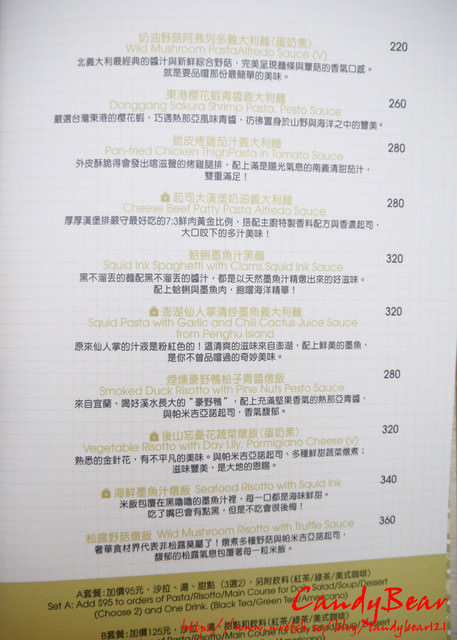 奶油野菇阿弗列多義大利麵(蛋奶素)
Wild Mushroom PastaAlfredo Sauce (V)
220
北義大利最經典的醬汁與新鮮綜合野菇，完美呈現麵條與蕈菇的香氣口感。
就是要品嚐那份最簡單的美味。
東港櫻花蝦青醬義大利麵
Donggang Sakura Shrimp Pasta, Pesto Sauce
260
嚴選台灣東港的櫻花蝦，巧遇熱那亞風味青醬，彷彿置身於山野與海洋之中的豐美。
脆皮烤雞茄汁義大利麵
Pan-fried Chicken ThighPasta in Tomato Sauce
280
外皮酥脆得會發出喀滋聲的烤雞腿排，配上滿是陽光氣息的南義清甜茄汁，
雙重滿足！
起司大漢堡奶油義大利麵
Cheese Beef Patty Pasta Alfredo Sauce
280
厚厚漢堡排嚴守最好吃的7:3鮮肉黃金比例，搭配主廚特製香料配方與香濃起司，
大口咬下的多汁美味！
蛤蜊墨魚汁黑麵
Squid Ink Spaghetti with Clams,Squid Ink Sauce
320
黑不溜丟的麵配黑不溜丟的醬汁，都是以天然墨魚汁精燉出來的好滋味。
配上蛤蜊與墨魚肉，飽嚐海洋精華！
澎湖仙人掌清炒墨魚義大利麵
Squid Pasta with Garlic and Chili Cactus Juice Sauce
from Penghu Island
320
原來仙人掌的汁液是粉紅色的！這清爽的滋味來自澎湖，配上鮮美的墨魚，
是你不曾品嚐過的奇妙美味。
煙燻豪野鴨松子青醬燉飯
Smoked Duck Risotto with Pine Nuts Pesto Sauce
280
來自宜蘭、喝好溪水長大的“豪野鴨”，配上充滿堅果香氣的熱那亞青醬，
與帕米吉亞諾起司，香氣馥郁。
後山忘憂花蔬菜燉飯(蛋奶素)
Vegetable Risotto with Day Lily, Parmigiano Cheese (V)
320
熟悉的金針花，有不平凡的美味。與帕米吉亞諾起司、多種鮮甜蔬菜燉煮；
滋味豐美，是大地的恩賜。
海鮮墨魚汁燉飯 Seafood Risotto with Squid Ink
340
米飯包覆在黑嚕嚕的墨魚汁裡，每一口都是海味鮮甜。
吃了嘴巴會有點黑，但是不吃會很後悔！
松露野菇燉飯 Wild Mushroom Risotto with Truffle Sauce
360
奢華食材界代表非松露莫屬了！燉煮多種野菇與帕米吉亞諾起司，
馥郁的松露氣息包覆著每一粒米飯。
A套餐：加價95元，沙拉、湯、甜點（3選2），另附飲料(紅茶/綠茶/美式咖啡)
Set A: Add $95 to orders of Pasta/Risotto/Main Course for Dais Salad/Soup/Dessert
(Choose 2) and One Drink. (Black Tea/Green Tea/Americano)
B套餐：加價125元，
CandyBear